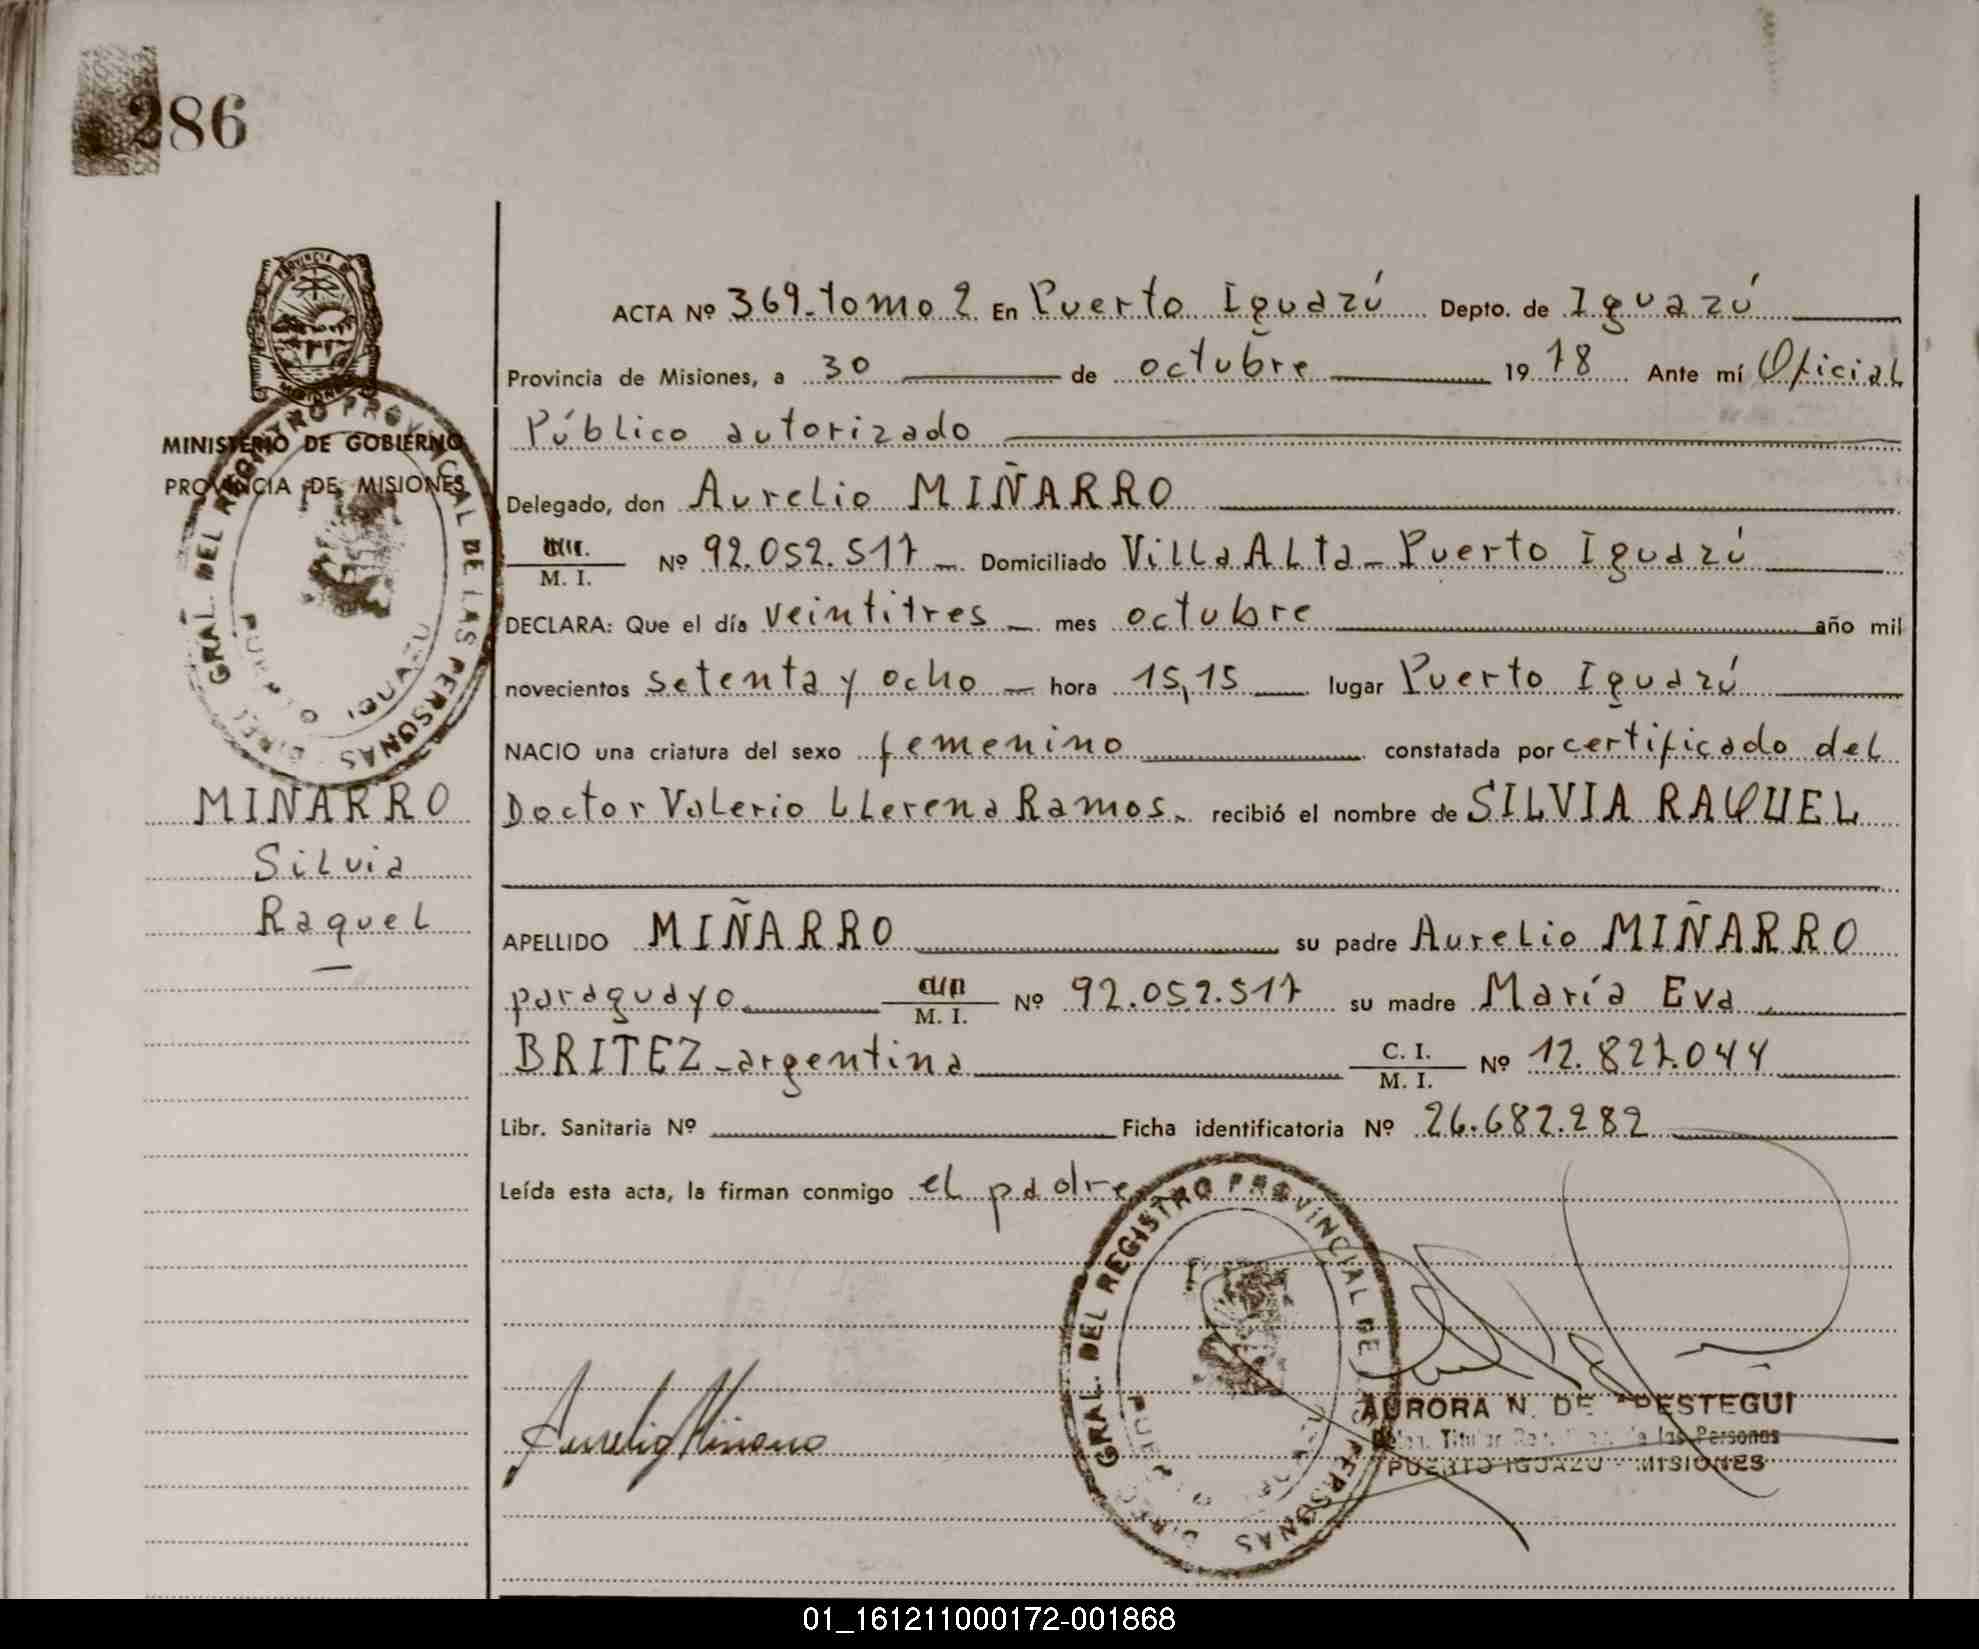 286
MINISTERIO DE GOBIERNO
PROVINCIA DE MISIONES
GRAL. DEL REGISTRO PROVINCIAL DE LAS PERSONAS
PUERTO IGUAZU
MIÑARRO
Silvia
Raquel
ACTA Nº 369-tomo 2 En Puerto Iguazú Depto. de Iguazú
Provincia de Misiones, a 30 de octubre 1978 Ante mí Oficial
Público autorizado
Delegado, don Aurelio MIÑARRO
M. I. Nº 92.052.517 Domiciliado Villa Alta - Puerto Iguazú
DECLARA: Que el día veintitres mes octubre año mil
novecientos setenta y ocho hora 15,15 lugar Puerto Iguazú
NACIO una criatura del sexo femenino constatada por certificado del
Doctor Valerio Llerena Ramos recibió el nombre de SILVIA RAQUEL
APELLIDO MIÑARRO su padre Aurelio MIÑARRO
paraguayo M. I. Nº 92.052.517 su madre María Eva
BRITEZ - argentina C. I. M. I. Nº 12.827.044
Libr. Sanitaria Nº Ficha identificatoria Nº 26.682.282
Leída esta acta, la firman conmigo el padre
GRAL. DEL REGISTRO PROVINCIAL DE LAS PERSONAS
Aurelio Miñarro
AURORA N. DE
Titular de las Personas
PUERTO IGUAZU - MISIONES
01_161211000172-001868